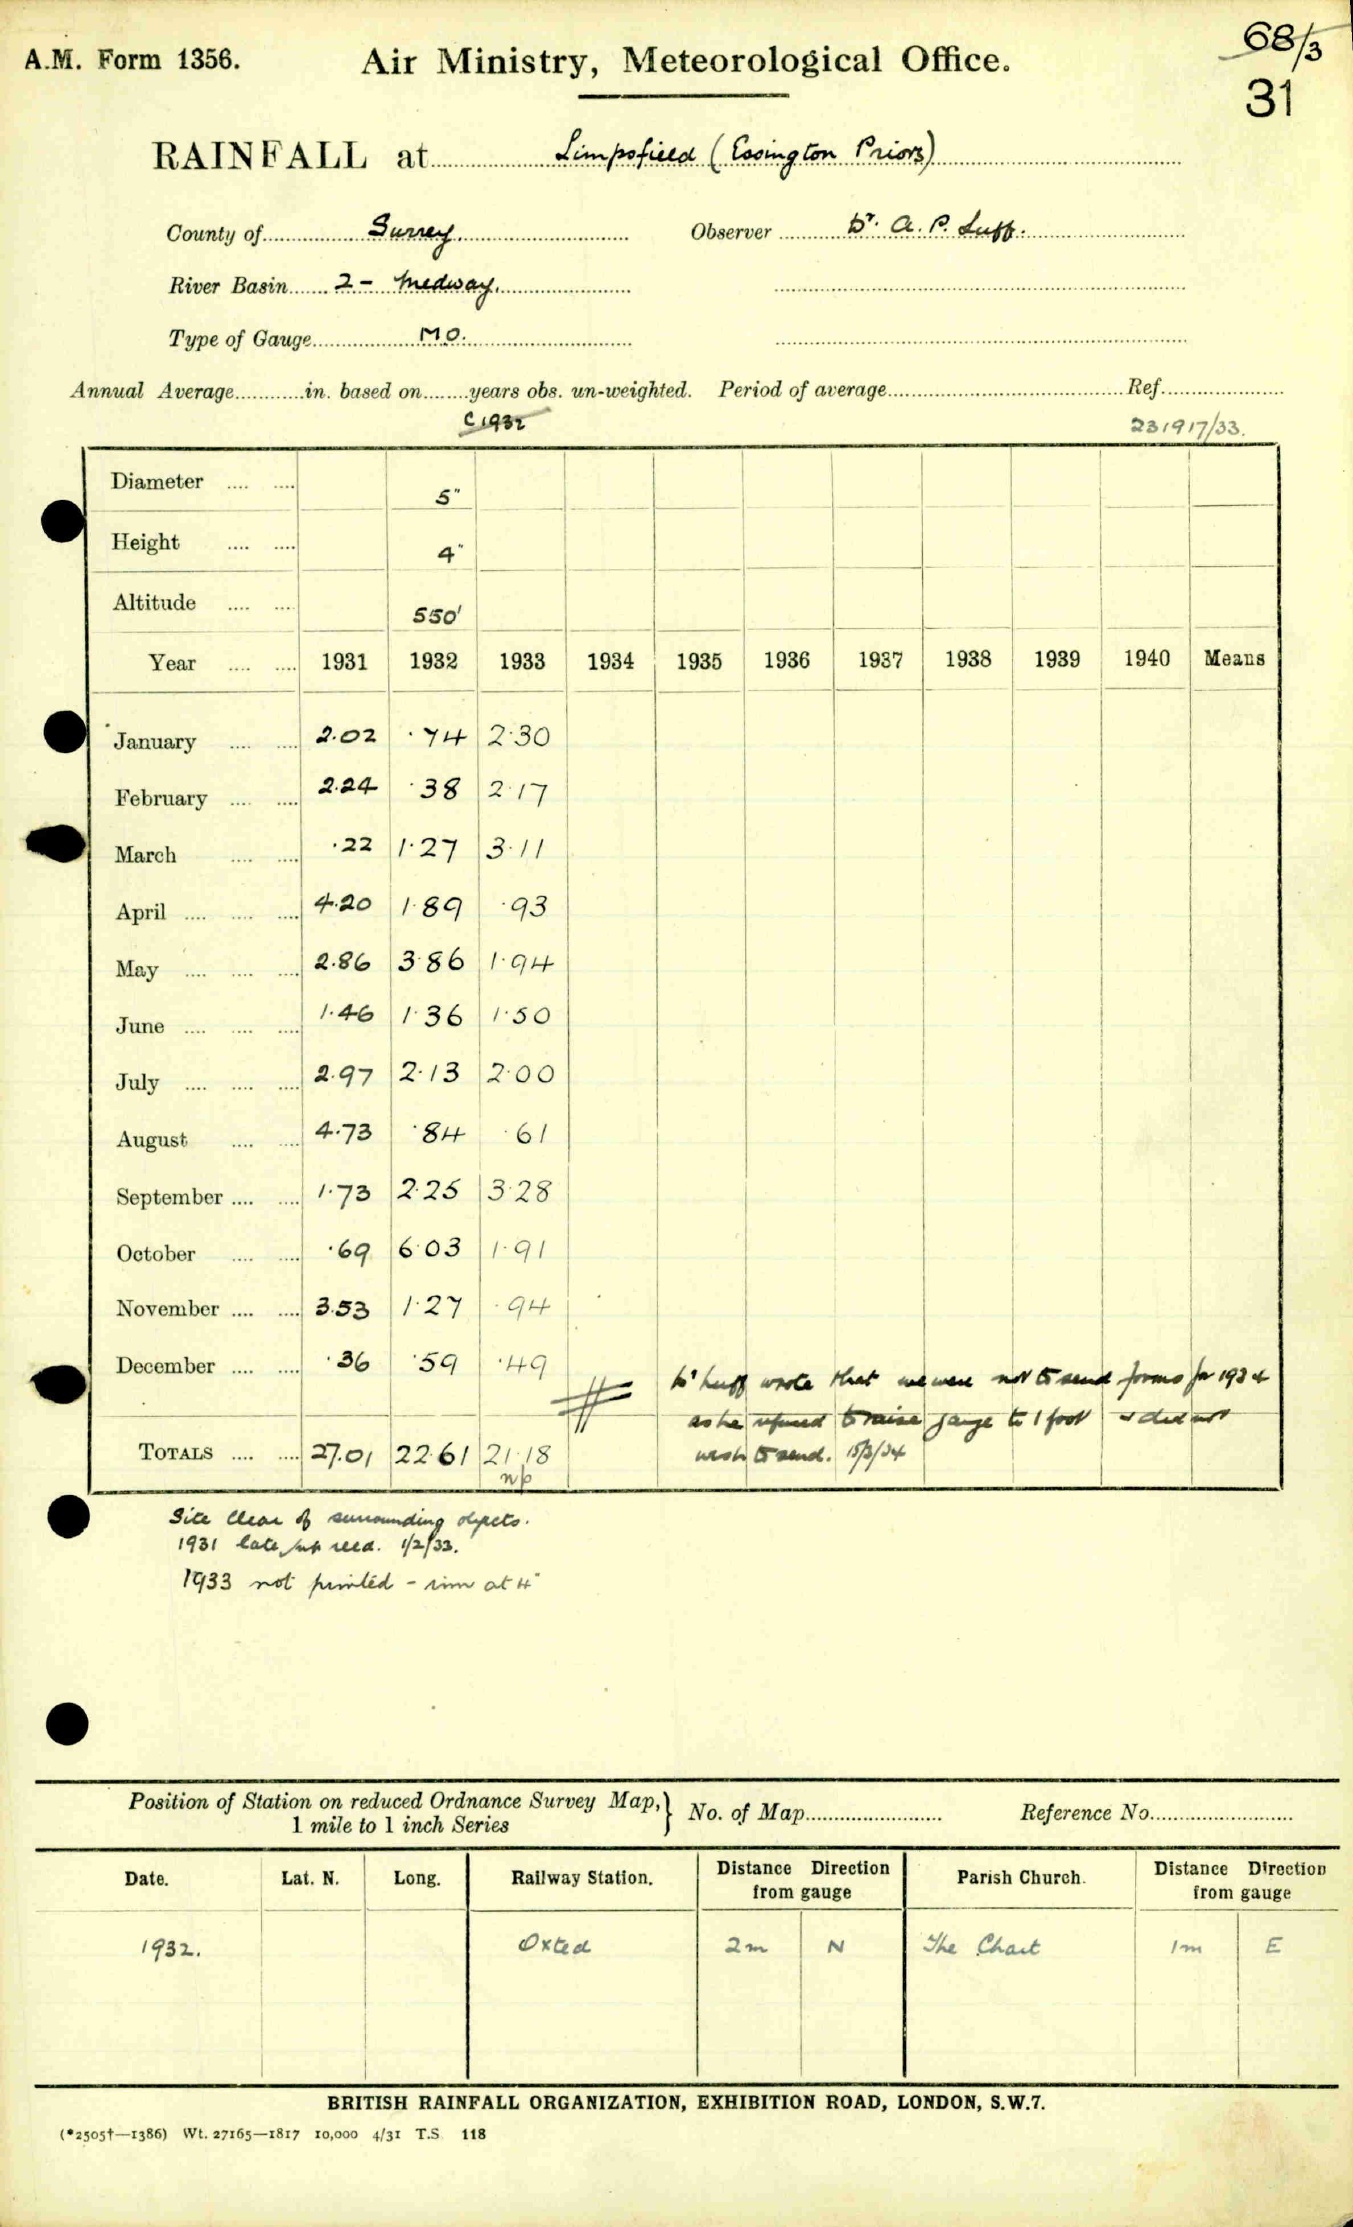 A.M. Form 1356.
Air Ministry, Meteorological Office.
68/3
31
RAINFALL at Limpsfield (Essington Priors)
County of Surrey. Observer Dr. A. P. Luff.
River Basin 2 - Medway.
Type of Gauge M.O.
Annual Average in. based on years obs. un-weighted. Period of average Ref.
C1932 231917/33.
Diameter 5"
Height 4"
Altitude 550'
Year 1931 1932 1933 1934 1935 1936 1937 1938 1939 1940 Means
January 2.02 .74 2.30
February 2.24 .38 2.17
March .22 1.27 3.11
April 4.20 1.89 .93
May 2.86 3.86 1.94
June 1.46 1.36 1.50
July 2.97 2.13 2.00
August 4.73 .84 .61
September 1.73 2.25 3.28
October .69 6.03 1.91
November 3.53 1.27 .94
December .36 .59 .49
Dr Luff wrote that we were not to send forms for 1934
as he refused to raise gauge to 1 foot & did not
wish to send. 15/3/34
TOTALS 27.01 22.61 21.18
np
Site clear of surrounding objects.
1931 late, recd. 1/2/33.
1933 not printed - rim at 4"
Position of Station on reduced Ordnance Survey Map,
1 mile to 1 inch Series
No. of Map Reference No.
Date. Lat. N. Long. Railway Station. Distance Direction from gauge Parish Church. Distance Direction from gauge
1932. Oxted 2m N The Chart 1m E
BRITISH RAINFALL ORGANIZATION, EXHIBITION ROAD, LONDON, S.W.7.
(*2505†—1386) Wt. 27165—1817 10,000 4/31 T.S. 118